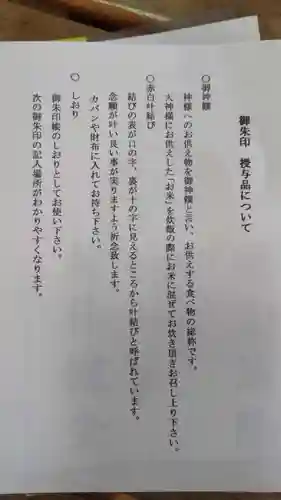 御朱印 授与品について
〇御神饌
神様へのお供え物を御神饌と言い、お供えする食べ物の総称です。
大神様にお供えした「お米」を炊飯の際にお米に混ぜてお炊き頂きお召し上り下さい。
〇赤白叶結び
結びの表が口の字、裏が十の字に見えるところから叶結びと呼ばれています。
念願が叶い良い事が実りますよう祈念致します。
カバンや財布に入れてお持ち下さい。
〇しおり
御朱印帳のしおりとしてお使い下さい。
次の御朱印の記入場所がわかりやすくなります。